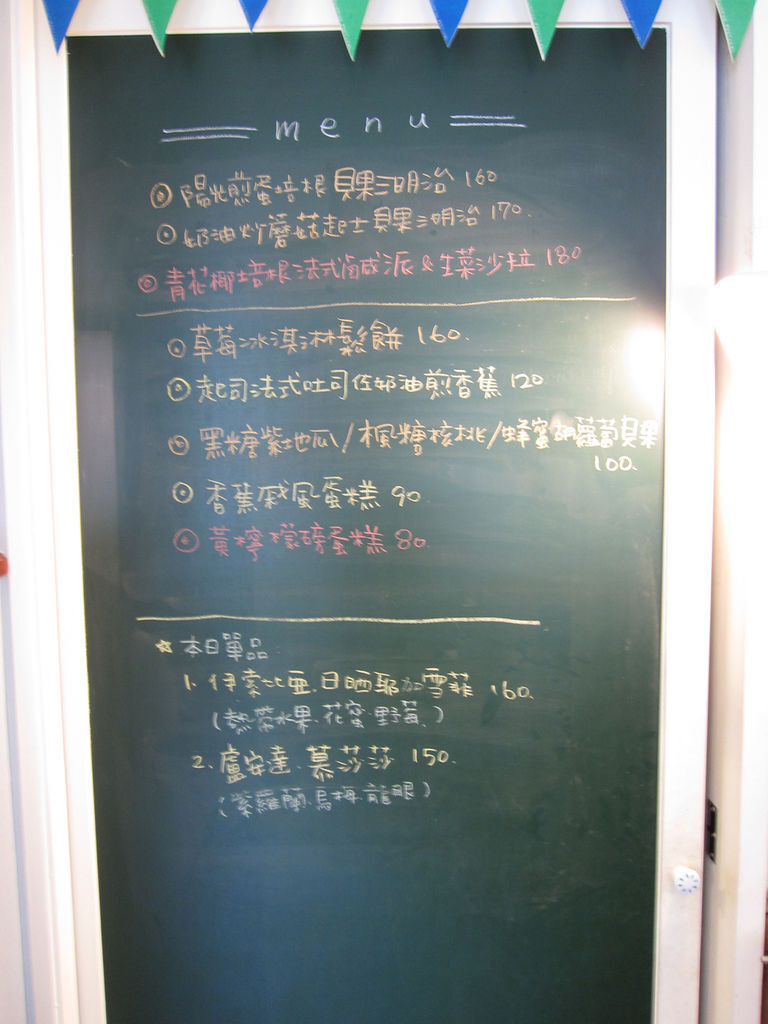 menu
陽光煎蛋培根貝果三明治 160
奶油炒蘑菇起士貝果三明治 170.
青花椰培根法式鹹派 & 生菜沙拉 180
草莓冰淇淋鬆餅 160.
起司法式吐司佐奶油煎香蕉 120
黑糖紫地瓜/楓糖核桃/蜂蜜胡蘿蔔貝果
100.
香蕉戚風蛋糕 90
黃檸檬磅蛋糕 80.
☆本日單品
1. 伊索比亞.日晒耶加雪菲 160.
(熱帶水果.花蜜.野莓.)
2. 盧安達.慕莎莎 150.
(紫羅蘭.烏梅.龍眼)